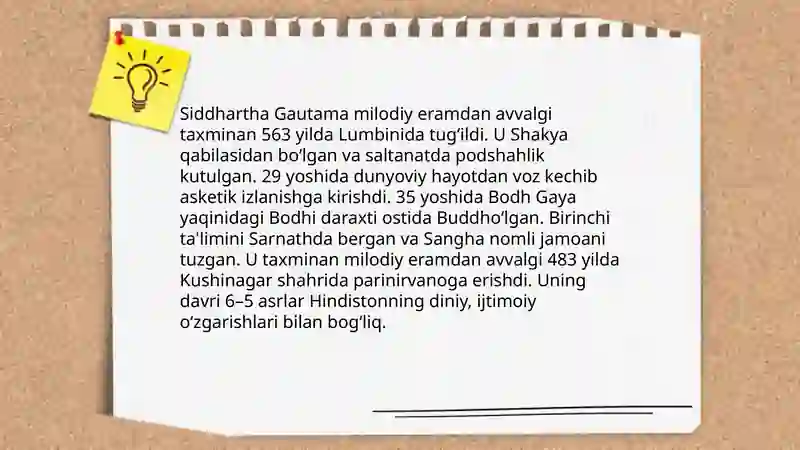 Siddhartha Gautama milodiy eramdan avvalgi
taxminan 563 yilda Lumbinida tugʻildi. U Shakya
qabilasidan boʻlgan va saltanatda podshahlik
kutulgan. 29 yoshida dunyoviy hayotdan voz kechib
asketik izlanishga kirishdi. 35 yoshida Bodh Gaya
yaqinidagi Bodhi daraxti ostida Buddhoʻlgan. Birinchi
ta'limini Sarnathda bergan va Sangha nomli jamoani
tuzgan. U taxminan milodiy eramdan avvalgi 483 yilda
Kushinagar shahrida parinirvanoga erishdi. Uning
davri 6–5 asrlar Hindistonning diniy, ijtimoiy
oʻzgarishlari bilan bogʻliq.